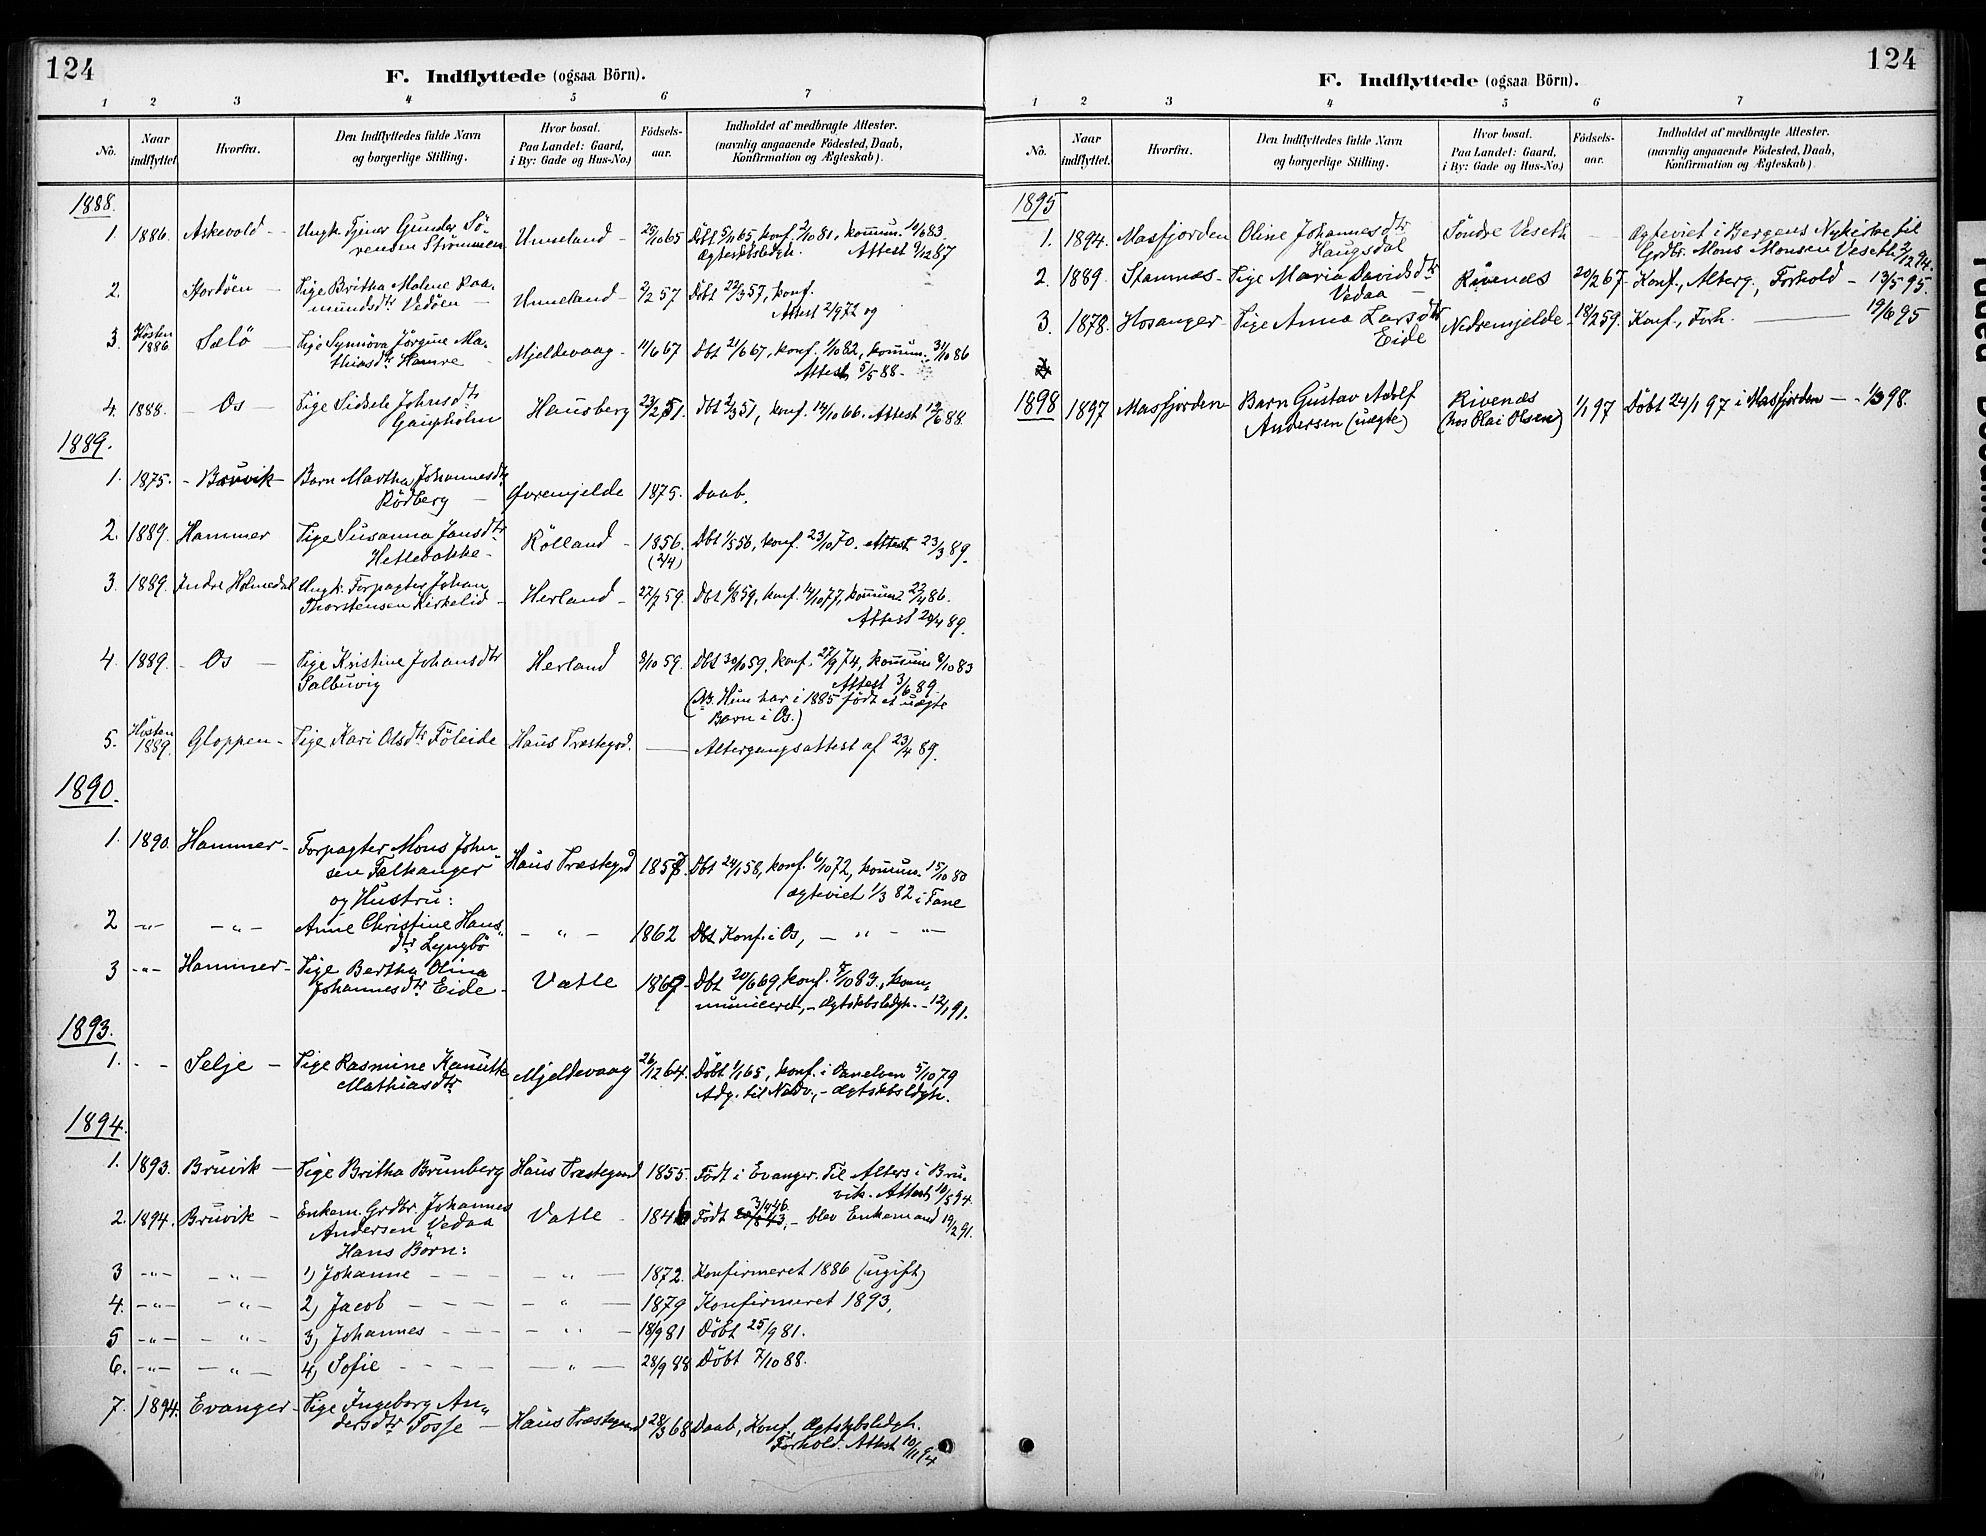 124
F. Indflyttede (ogsaa Börn).
1 2 3 4 5 6 7
No. Naar indflyttet. Hvorfra. Den Indflyttedes fulde Navn og borgerlige Stilling. Hvor bosat. Paa Landet: Gaard, i By: Gade og Hus-No.) Födsels-aar. Indholdet af medbragte Attester. (navnlig angaaende Födested, Daab, Konfirmation og Ægteskab).
1888.
1. 1886. Askevold — Ungk. Tjener Gunder Sö- Unneland — 25/10 65 Döbt 5/11 65, konf. 2/10 81, kommun. 14/6 83.
rensen Strömmen Ægteskbsledgh. Attest 9/12 87
2. Stordöen — Pige Britha Malene Raa- Unneland — 2/2 57 Döbt 22/3 57, konf.
mundsdtr Vedöen — Attest 2/9 72 og
3. Hösten 1886 Sælö — Pige Synnöva Jörgine Ma- Mjeldevaag — 11/6 67 Dbt 21/6 67, konf. 1/10 82, kommun. 31/10 86
thiasdtr Hamre — Attest 5/5 88.
4. 1888. — Os — Pige Sidsele Johnsdtr Hausberg 23/2 51. Dbt 2/3 51, konf. 14/10 66. Attest 12/6 88.
Gaupholm
1889.
1. 1875. — Bruvik — Barn Martha Johannesdtr Övremjelde 1875. Daab.
Rödberg —
2. 1889. Hammer Pige Susanna Jansdtr Rölland — 1856. (2/4) Dbt 1/5 56, konf. 23/10 70. Attest 23/3 89.
Hettebakke —
3. 1889. Indre Holmedal Ungk. Forpagter Johan Herland — 27/7 59. Dbt 6/8 59, konf. 14/10 77, kommun. 22/4 86.
Thorstensen Kirkelid — Attest 20/4 89.
4. 1889. — Os — Pige Kristine Johansdtr Herland 8/10 59. Dbt 30/10 59, konf. 27/9 74, kommun 8/10 83
Salbuvig Attest 3/6 89.
(NB. Hun har i 1885 födt et uægte
Barn i Os.)
5. Hösten 1889. Gloppen — Pige Kari Olsdtr Föleide Haus Præstegrd. — Altergangsattest af 23/4 89.
1890.
1. 1890. Hammer — Forpagter Mons John- Haus Præstegrd 1857 Dbt 24/1 58, konf. 6/10 72, kommun. 15/10 80
sen Tælhanger ægteviet 1/3 82 i Fane
og Hustru:
2 —"— — " — Anne Christine Hans- — " — 1862 Dbt Konf i Os, — " — "—
dtr Lyngbö
3 —"— Hammer — Pige Bertha Olina Vatle 1869 — Dbt 20/6 69, konf. 7/10 83., kom-
Johannesdtr Eide — municeret, — ægtskbsledgh. — 12/1 91.
1893.
1. — — Selje — Pige Rasmine Kanutte Mjeldevaag 26/12 64. Döbt 1/1 65, konf. i Vanelven 5/10 79
Mathiasdtr Adg. til Nadv., — ægtskbsldgh.
1894.
1. 1893. Bruvik — Pige Britha Brunberg Haus Præstegaard 1855. Födt i Evanger. Til Alters i Bru-
vik. Attest 10/5 94.
2. 1894. Bruvik — Enkem. Grdbr. Johannes Vatle — 1846 Födt 3/4 46. — blev Enkemand 19/2 91.
Andersen Vedaa
Hans Börn:
3 —"— — " — 1) Johanne — — — — " — 1872. Konfirmeret 1886 (ugift)
4. —"— — " — 2) Jacob — — — — " — 1879 Konfirmeret 1893.
5 —"— — " — 3) Johannes — — — — " — 18/9 81 Döbt 25/9 81.
6. —"— — " — 4) Sofie — — — — — " — 28/9 88 Döbt 7/10 88.
7. 1894. Evanger — Pige Ingeborg An- Haus Præstegaard 28/3 68 Daab, Konf, ægtskbsledgh.
dersdtr Fosse — Forhold. Attest 10/11 94
124
F. Indflyttede (ogsaa Börn).
1 2 3 4 5 6 7
No. Naar indflyttet. Hvorfra. Den Indflyttedes fulde Navn og borgerlige Stilling. Hvor bosat. Paa Landet: Gaard, i By: Gade og Hus-No.) Födsels-aar. Indholdet af medbragte Attester. (navnlig angaaende Födested, Daab, Konfirmation og Ægteskab).
1895
1. 1894. Masfjorden Oline Johannesdtr Söndre Veseth — Ægteviet i Bergens Nykirke til
Haugsdal Grdbr. Mons Monsen Veseth 2/12 94.
2. 1889. Stamnes — Pige Maria Davidsdtr Rivenæs 20/2 67 — Konf., Alterg., Forhold — 13/5 95.
Vedaa —
3. 1878. Hosanger — Pige Anna Larsdtr Nedremjelde — 18/2 59. Konf., Forh. — 19/6 95
Eide
1898 1897 Masfjorden — Barn Gustav Adolf Rivenæs 1/1 97 Döbt 24/1 97 i Masfjorden — 1/3 98.
Andersen (uægte) (hos Olai Olsen)